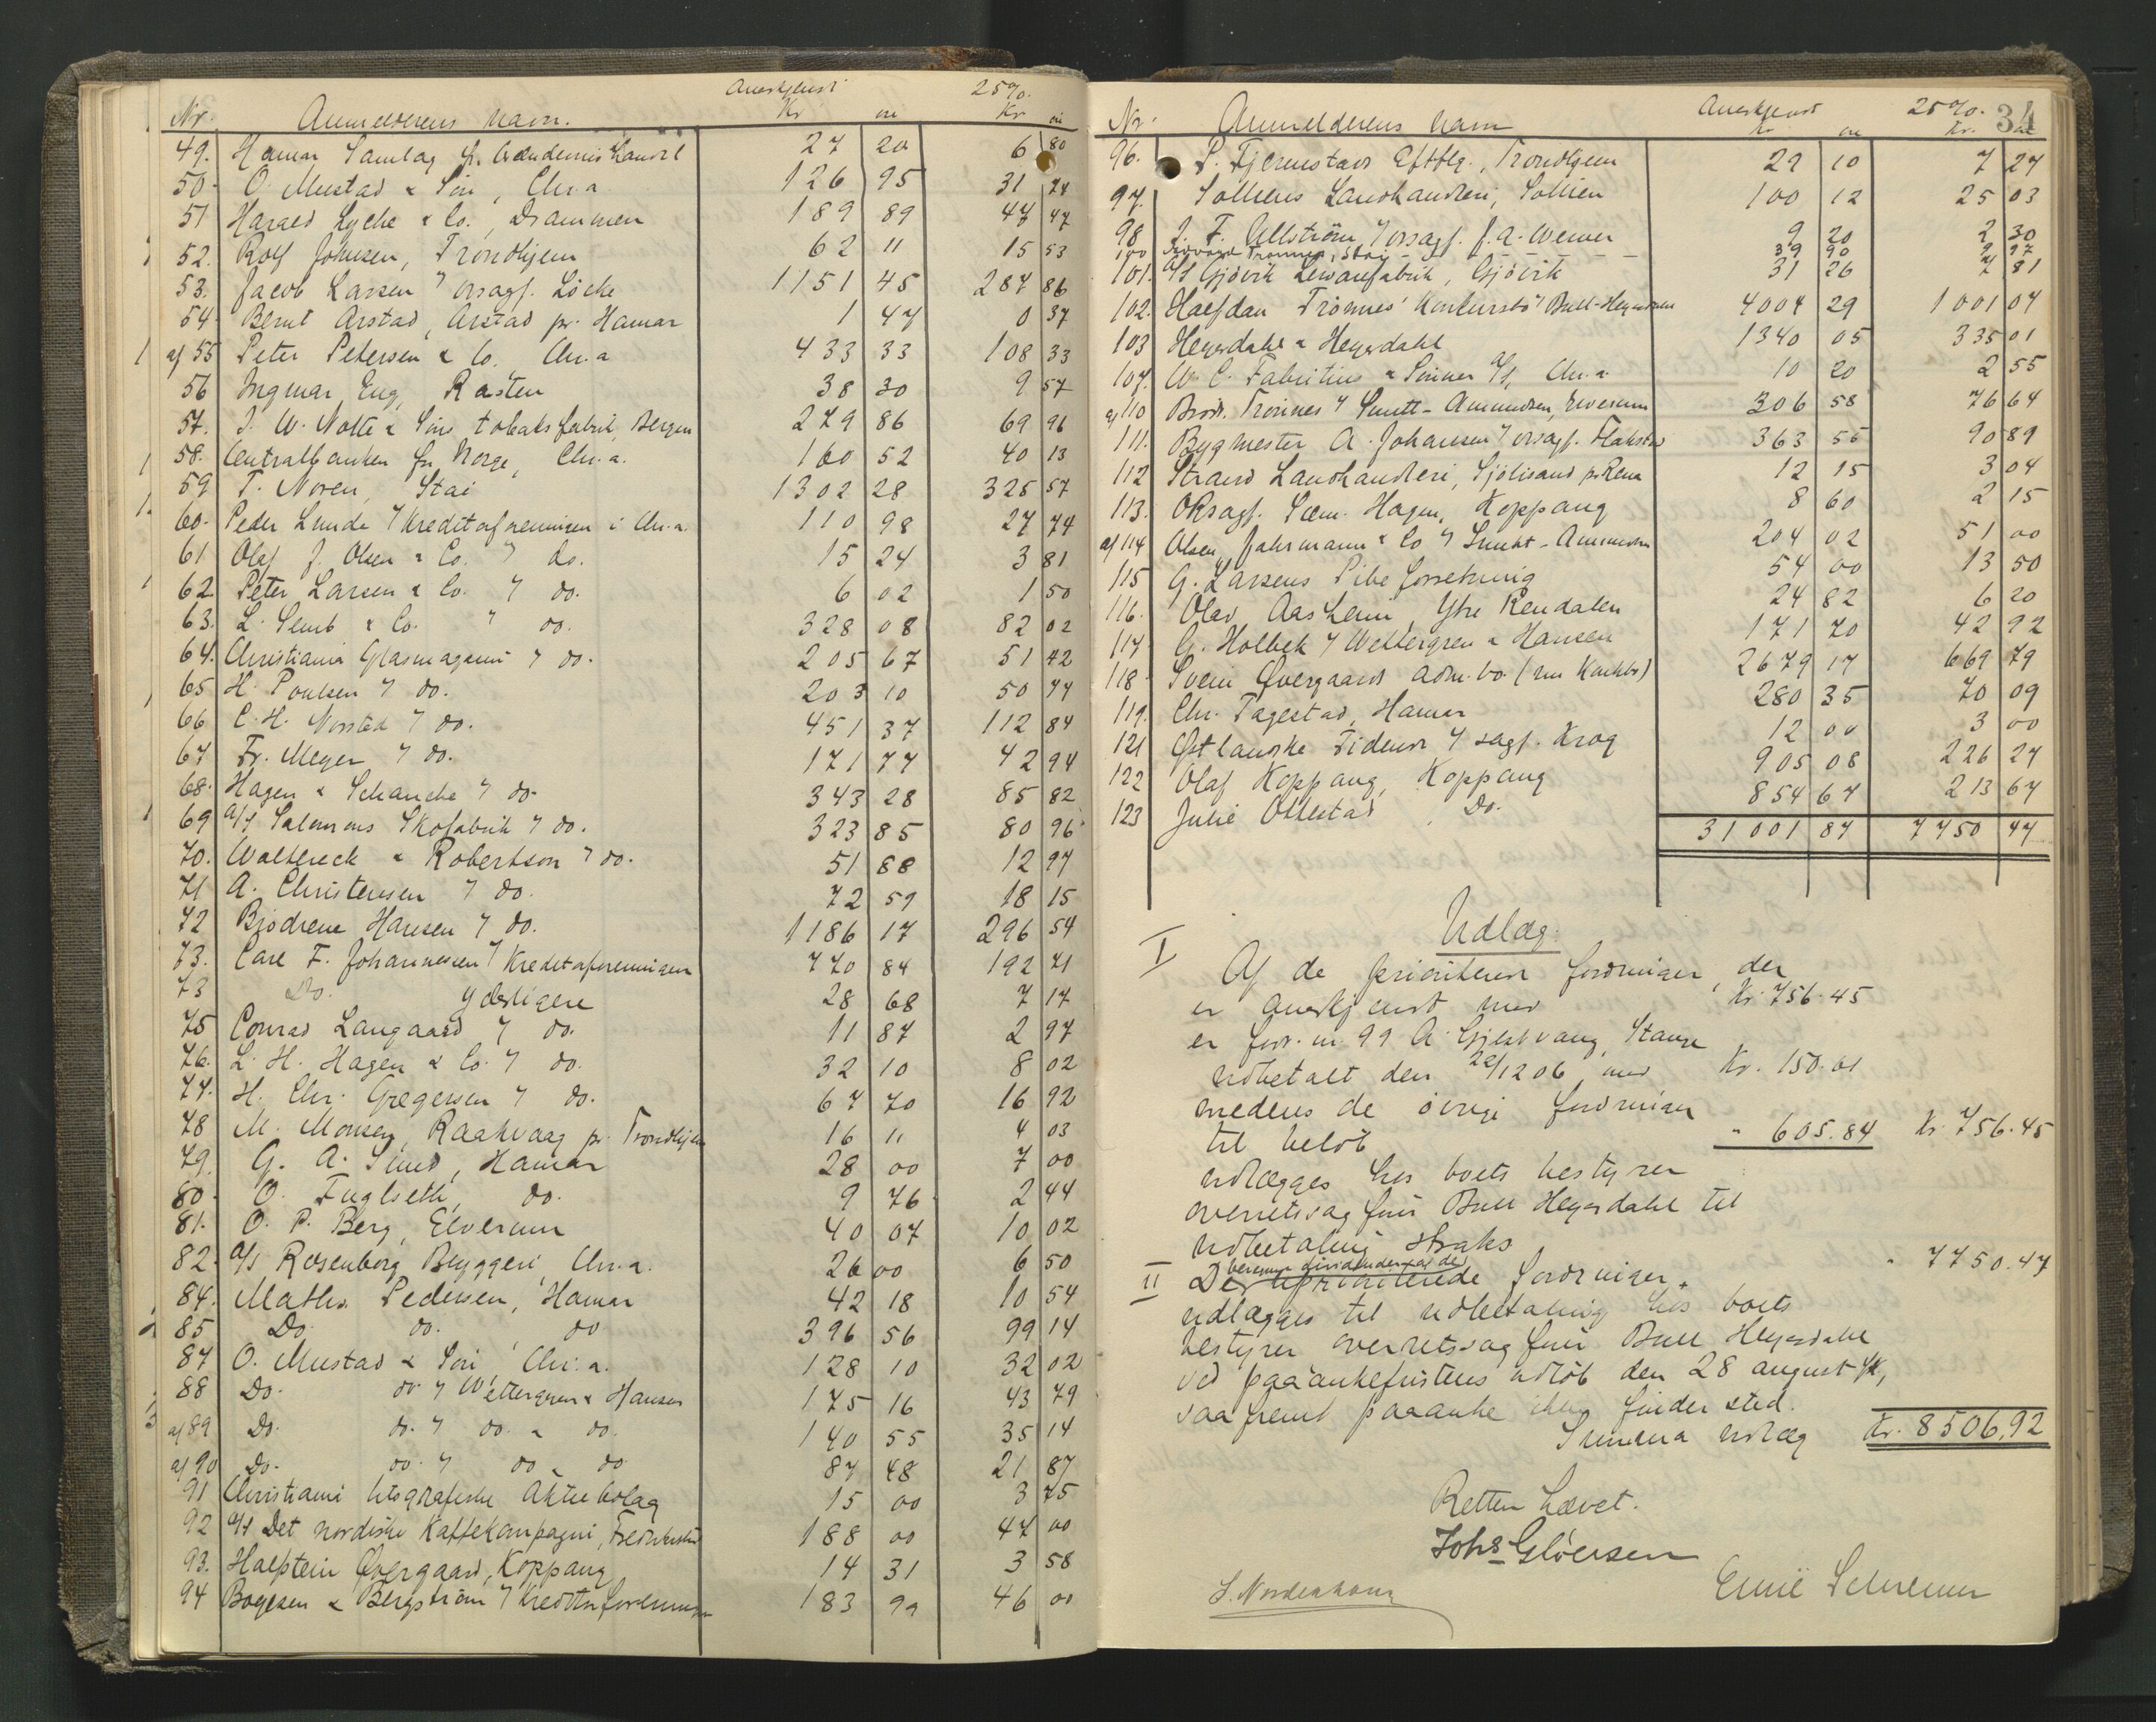 Nr. Anmelderens Navn. Anerkjendt Kr øre 25%. Kr. øre
49. Hamar Samlag 27 20 6 80
50. O. Mustad & Søn, Chr.a 126 95 31 74
51 Harald Lyche & Co., Drammen 189 89 47 47
52. Rolf Johnsen, Trondhjem 62 11 15 53
53. Jacob Larsen 7 orsagf. Löcke 1151 45 287 86
54. Bernt Arstad, Arstad pr. Hamar 1 47 0 37
af 55 Peter Petersen & Co. Chr.a 433 33 108 33
56 Ingmar Eng, Rasten 38 30 9 57
57. J. W. Nolte & Søns tobaksfabrik, Bergen 279 86 69 96
58. Centralbanken for Norge, Chr.a. 160 52 40 13
59 T. Noren, Stai 1302 28 325 57
60. Peder Lunde 7 Kreditforeningen i Chr.a. 110 98 27 74
61 Olaf J. Olsen & Co. 7 do. 15 24 3 81
62 Peter Larsen & Co. 7 do. 6 02 1 50
63. L. Semb & Co. " do. 328 08 82 02
64. Christiania Glasmagasin 7 do. 205 67 51 42
65 H. Poulsen 7 do. 203 10 50 77
66 C. H. Norsted 7 do. 451 37 112 84
67 Fr. Meyer 7 do. 171 77 42 94
68. Hagen & Schanche 7 do. 343 28 85 82
69 A/S Salomons Skofabrik 7 do. 323 85 80 96
70. Woltereck & Robertson 7 do. 51 88 12 97
71 A. Christensen 7 do. 72 59 18 15
72 Brödrene Hansen 7 do. 1186 17 296 54
73. Carl F. Johannessen 7 Kreditforeningen 770 84 192 71
73 Do. yderligere 28 68 7 17
75 Conrad Langaard 7 do. 11 87 2 97
76. L. H. Hagen & Co. 7 do. 32 10 8 02
77. H. Chr. Gregersen 7 do. 67 70 16 92
78 M. Monsen, Raakvaag pr. Trondhjem 16 11 4 03
79. G. A. Lund, Hamar 28 00 7 00
80. O. Fuglseth, do. 9 76 2 44
81. O. P. Berg, Elverum 40 07 10 02
82. A/S Rosenborg Bryggeri, Chr.a. 26 00 6 50
84. Maths. Pedersen, Hamar 42 18 10 54
85 Do. do. do 396 56 99 14
87 O. Mustad & Søn, Chr.a. 128 10 32 02
88 Do. do. 7 Wettergren & Hansen 175 16 43 79
af 89 Do. do. 7 do. & do. 140 55 35 14
af 90 Do. do. 7 do & do 87 48 21 87
91 Christiania litografiske Aktiebolag 15 00 3 75
92 A/S Det nordiske Kaffekompagni, Fredrikstad 188 00 47 00
93. Halfstein Övergaard, Koppang 14 31 3 58
94 Bogesen & Bergström 7 Kreditorforeningen 183 99 46 00
34
Nr. Anmelderens Navn Anerkjendt Kr øre 25%. Kr. øre
96. P. Fjermstads Eftflg., Trondhjem 29 10 7 27
97. Solliens Landhandleri, Sollien 100 12 25 03
98 J. F. Ullström 7 orsagf. J. A. Wewer 9 20 2 30
100 Trönnes, Stai 39 90 9 97
101. A/S Gjövik Lewanfabrik, Gjövik 31 26 7 81
102. Halfdan Trönnes' Konkursbo 7 Bull-Heyerdahl 4004 29 1001 07
103 Heyerdahl & Heyerdahl 1340 05 335 01
107. W. C. Fabritius & Sönner A/S, Chr.a 10 20 2 55
af 110 Brödr. Trönnes 7 Smitt-Amundsen, Elverum 306 58 76 64
111. Bygmester A. Johansen 7 orsagf. Flakstad 363 55 90 89
112 Strand Landhandleri, Sjölisand pr Rena 12 15 3 04
113. ORsagf. Sæm. Hagen, Koppang 8 60 2 15
af 114 Olsen, Jahrmann & Co 7 Smitt-Amundsen 204 02 51 00
115 G. Larsens Pibeforretning 54 00 13 50
116. Olav Aasheim, Ytre Rendalen 24 82 6 20
117. G. Holbek 7 Wettergren & Hansen 171 70 42 92
118. Svein Övergaards adm.bo. 2679 17 669 79
119. Chr. Fagestad, Hamar 280 35 70 09
121 Östlandske Tidende 7 sagf. Krog 12 00 3 00
122 Olaf Koppang, Koppang 905 08 226 27
123 Julie Ollestad, Do. 854 67 213 67
31001 87 7750 47
Udlæg.
I Af de prioriterede fordringer, der
er anerkjendt med Kr. 756.45
er fordr. nr. 99 A. Gjestvang, Stange
udbetalt den 22/12 06 med Kr. 150.61
medens de övrige fordringer
til belöb " 605.84 Kr. 756.45
udlægges hos boets bestyrer
overretssagförer Bull Heyerdahl til
udbetaling straks
II De uprioriterede fordringer " 7750.47
udlægges til udbetaling hos boets
bestyrer overretssagförer Bull Heyerdahl
ved paaankefristens udlöb den 28 august
saafremt paaanke ikke finder sted.
Summa udlæg Kr. 8506.92
Retten hævet.
Johs Glöersen
S. Nordenhaug
Emil Schreiner